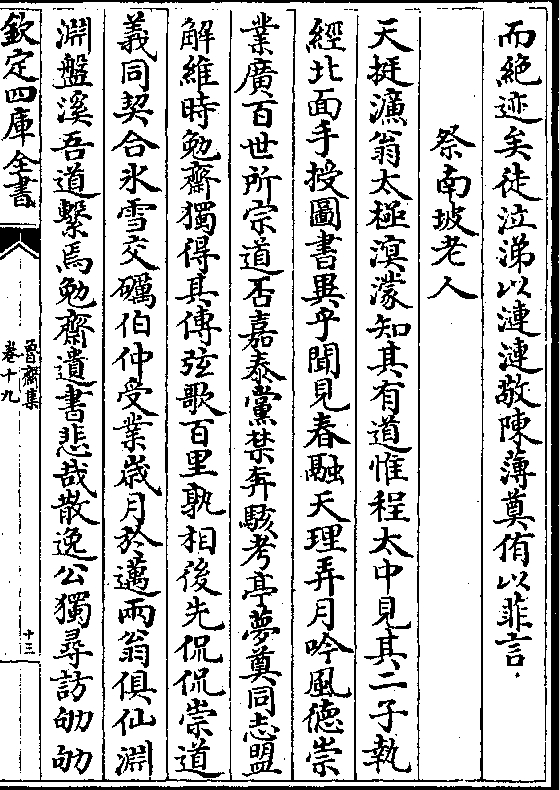 而絶迹矣徒泣涕以漣漣敬陳薄奠侑以菲言
祭南坡老人
天挺濂翁太極溟濛知其有道惟程太中見其二子執
經北面手授圖書異乎聞見春融天理弄月吟風德崇
業廣百世所宗道否嘉泰黨禁奔駭考亭夢奠同志盟
解維時勉齋獨得其傳弦歌百里孰相後先侃侃崇道
義同契合氷雪交礪伯仲受業歳月於邁兩翁俱仙淵
淵盤溪吾道繫焉勉齋遺書悲哉散逸公獨尋訪劬劬
欽定四庫全書
魯齋集
卷十九
十三